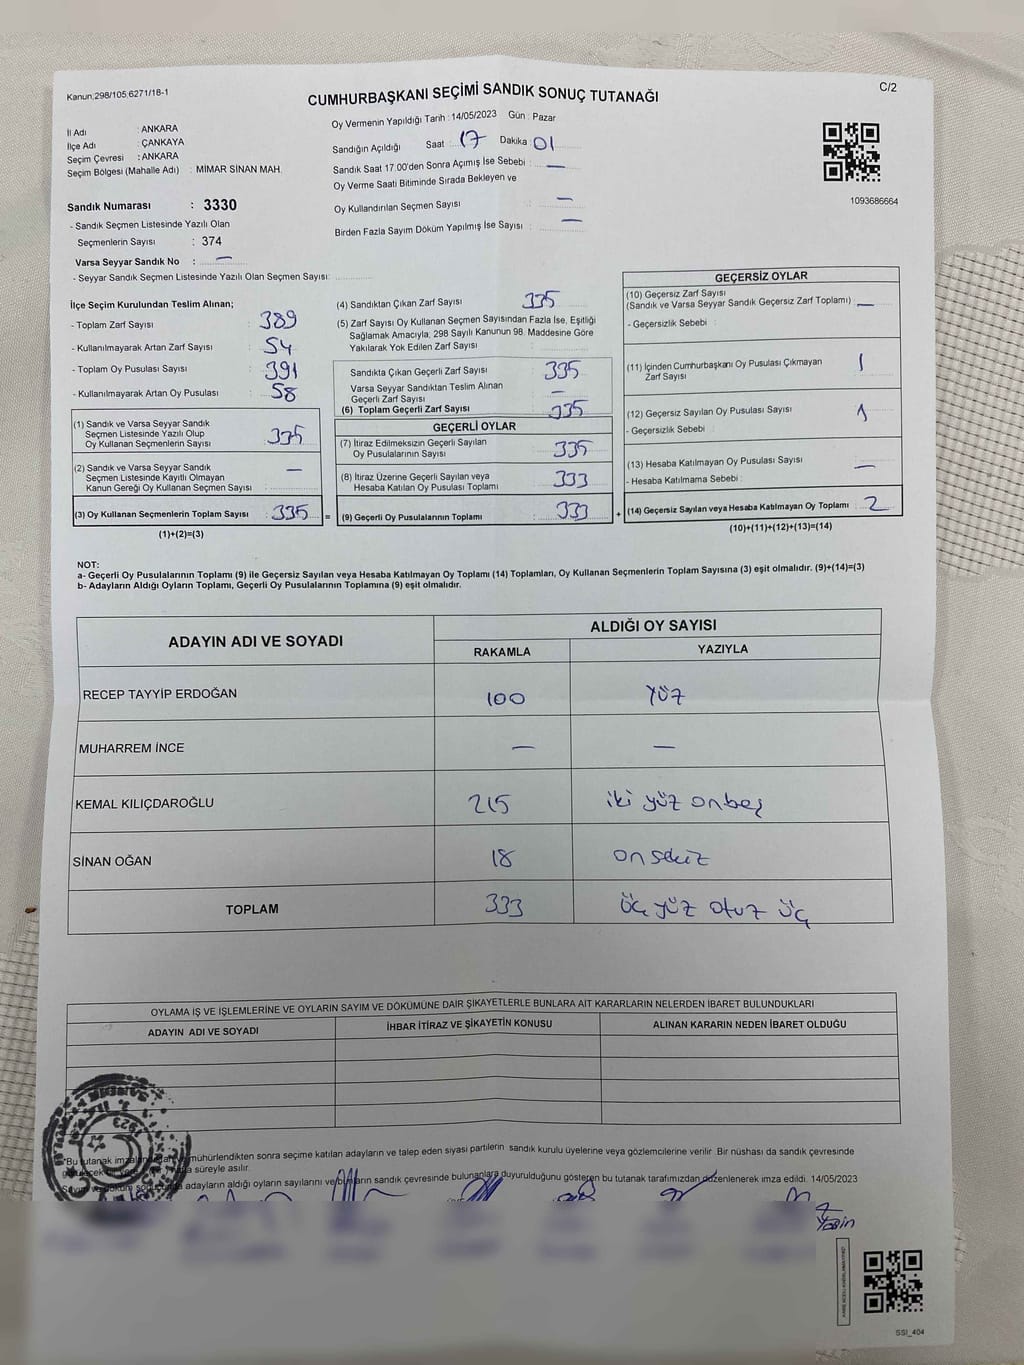 Kanun:298/105,6271/18-1
C/2
CUMHURBAŞKANI SEÇİMİ SANDIK SONUÇ TUTANAĞI
İl Adı : ANKARA
İlçe Adı : ÇANKAYA
Seçim Çevresi : ANKARA
Seçim Bölgesi (Mahalle Adı) : MİMAR SİNAN MAH.
Sandık Numarası : 3330
- Sandık Seçmen Listesinde Yazılı Olan
Seçmenlerin Sayısı : 374
Varsa Seyyar Sandık No : —
- Seyyar Sandık Seçmen Listesinde Yazılı Olan Seçmen Sayısı:
Oy Vermenin Yapıldığı Tarih : 14/05/2023 Gün : Pazar
Sandığın Açıldığı Saat : 17 Dakika : 01
Sandık Saat 17:00'den Sonra Açımış İse Sebebi : —
Oy Verme Saati Bitiminde Sırada Bekleyen ve
Oy Kullandırılan Seçmen Sayısı : —
Birden Fazla Sayım Döküm Yapılmış İse Sayısı : —
1093686664
İlçe Seçim Kurulundan Teslim Alınan;
- Toplam Zarf Sayısı : 389
- Kullanılmayarak Artan Zarf Sayısı : 54
- Toplam Oy Pusulası Sayısı : 391
- Kullanılmayarak Artan Oy Pusulası : 58
(1) Sandık ve Varsa Seyyar Sandık
Seçmen Listesinde Yazılı Olup
Oy Kullanan Seçmenlerin Sayısı : 335
(2) Sandık ve Varsa Seyyar Sandık
Seçmen Listesinde Kayıtlı Olmayan
Kanun Gereği Oy Kullanan Seçmen Sayısı : —
(3) Oy Kullanan Seçmenlerin Toplam Sayısı : 335
(1)+(2)=(3)
(4) Sandıktan Çıkan Zarf Sayısı : 335
(5) Zarf Sayısı Oy Kullanan Seçmen Sayısından Fazla İse, Eşitliği
Sağlamak Amacıyla; 298 Sayılı Kanunun 98. Maddesine Göre
Yakılarak Yok Edilen Zarf Sayısı :
Sandıkta Çıkan Geçerli Zarf Sayısı : 335
Varsa Seyyar Sandıktan Teslim Alınan
Geçerli Zarf Sayısı : —
(6) Toplam Geçerli Zarf Sayısı : 335
GEÇERLİ OYLAR
(7) İtiraz Edilmeksizin Geçerli Sayılan
Oy Pusulalarının Sayısı : 335
(8) İtiraz Üzerine Geçerli Sayılan veya
Hesaba Katılan Oy Pusulası Toplamı : 333
= (9) Geçerli Oy Pusulalarının Toplamı : 333 +
GEÇERSİZ OYLAR
(10) Geçersiz Zarf Sayısı
(Sandık ve Varsa Seyyar Sandık Geçersiz Zarf Toplamı) : —
- Geçersizlik Sebebi :
(11) İçinden Cumhurbaşkanı Oy Pusulası Çıkmayan
Zarf Sayısı : 1
(12) Geçersiz Sayılan Oy Pusulası Sayısı : 1
- Geçersizlik Sebebi :
(13) Hesaba Katılmayan Oy Pusulası Sayısı : —
- Hesaba Katılmama Sebebi :
(14) Geçersiz Sayılan veya Hesaba Katılmayan Oy Toplamı : 2
(10)+(11)+(12)+(13)=(14)
NOT:
a- Geçerli Oy Pusulalarının Toplamı (9) ile Geçersiz Sayılan veya Hesaba Katılmayan Oy Toplamı (14) Toplamları, Oy Kullanan Seçmenlerin Toplam Sayısına (3) eşit olmalıdır. (9)+(14)=(3)
b- Adayların Aldığı Oyların Toplamı, Geçerli Oy Pusulalarının Toplamına (9) eşit olmalıdır.
ADAYIN ADI VE SOYADI ALDIĞI OY SAYISI
RAKAMLA YAZIYLA
RECEP TAYYİP ERDOĞAN 100 yüz
MUHARREM İNCE — —
KEMAL KILIÇDAROĞLU 215 iki yüz onbeş
SİNAN OĞAN 18 on sekiz
TOPLAM 333 üç yüz otuz üç
OYLAMA İŞ VE İŞLEMLERİNE VE OYLARIN SAYIM VE DÖKÜMÜNE DAİR ŞİKAYETLERLE BUNLARA AİT KARARLARIN NELERDEN İBARET BULUNDUKLARI
ADAYIN ADI VE SOYADI İHBAR İTİRAZ VE ŞİKAYETİN KONUSU ALINAN KARARIN NEDEN İBARET OLDUĞU
"Bu tutanak mühürlendikten sonra seçime katılan adayların ve talep eden siyasi partilerin sandık kurulu üyelerine veya gözlemcilerine verilir. Bir nüshası da sandık çevresinde
süreyle asılır.
adayların aldığı oyların sayılarını ve bunların sandık çevresinde bulunanlara duyurulduğunu gösteren bu tutanak tarafımızdan düzenlenerek imza edildi. 14/05/2023
SSI_404